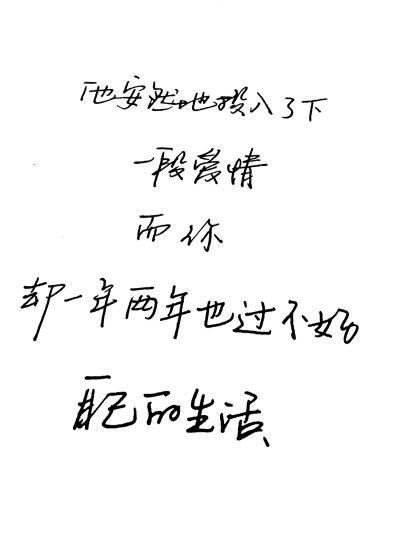 他安然地投入了下
一段爱情
而你
却一年两年也过不好
自己的生活